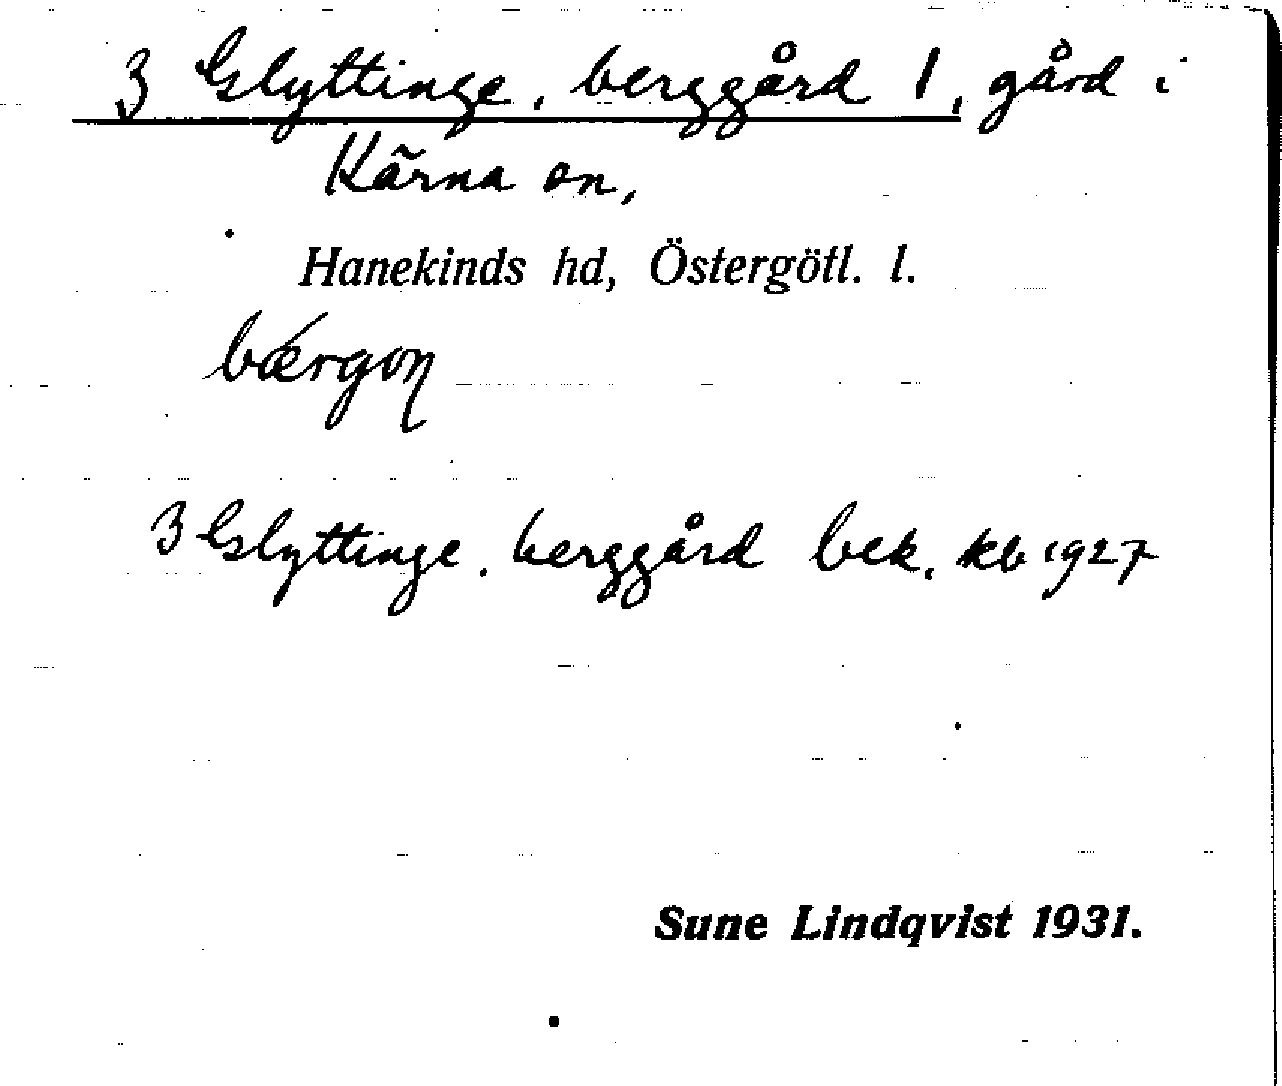 3 Glyttinge, berggård 1, gård i
Kärna sn,
Hanekinds hd, Östergötl. l.
bærgoɳ
3 Glyttinge, berggård bek. kb 1927
Sune Lindqvist 1931.